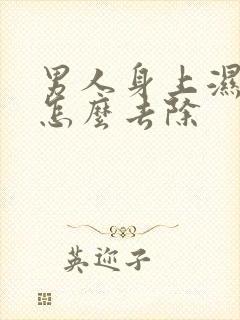 男人身上濕
怎麼去除
英迩子